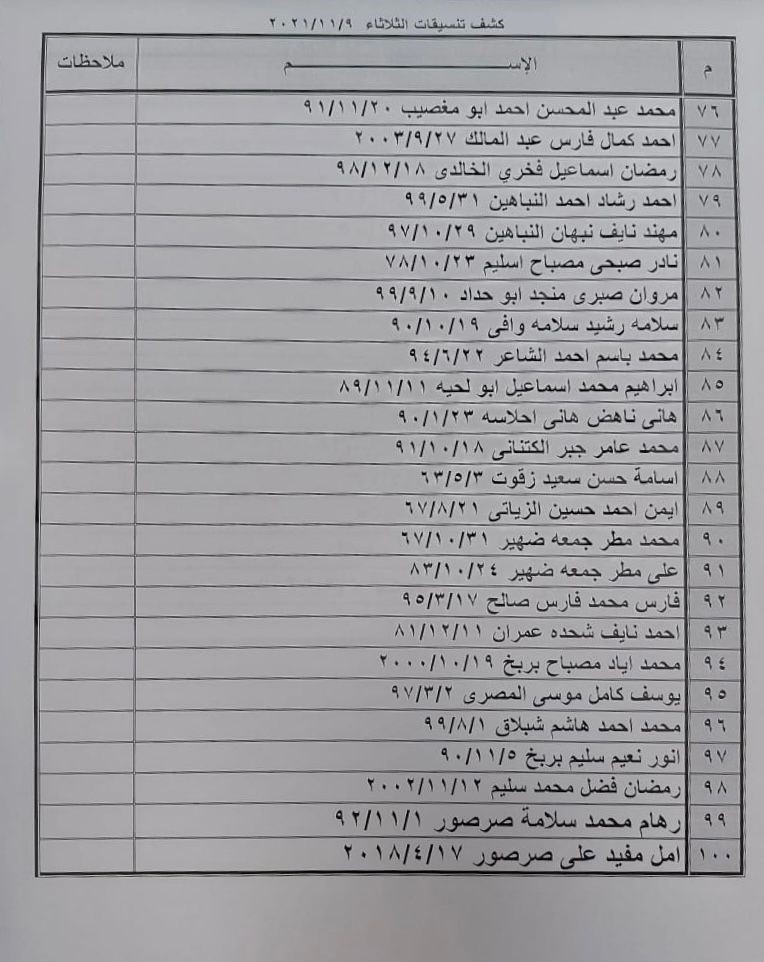 كشف تنسيقات الثلاثاء ٢٠٢١/١١/٩
م الإســـــــــــــــــــــــــم ملاحظات
٧٦ محمد عبد المحسن احمد ابو مغصيب ٩١/١١/٢٠
٧٧ احمد كمال فارس عبد المالك ٢٠٠٣/٩/٢٧
٧٨ رمضان اسماعيل فخري الخالدى ٩٨/١٢/١٨
٧٩ احمد رشاد احمد النباهين ٩٩/٥/٣١
٨٠ مهند نايف نبهان النباهين ٩٧/١٠/٢٩
٨١ نادر صبحى مصباح اسليم ٧٨/١٠/٢٣
٨٢ مروان صبرى منجد ابو حداد ٩٩/٩/١٠
٨٣ سلامه رشيد سلامه وافى ٩٠/١٠/١٩
٨٤ محمد باسم احمد الشاعر ٩٤/٦/٢٢
٨٥ ابراهيم محمد اسماعيل ابو لحيه ٨٩/١١/١١
٨٦ هانى ناهض هانى احلاسه ٩٠/١/٢٣
٨٧ محمد عامر جبر الكتنانى ٩١/١٠/١٨
٨٨ اسامة حسن سعيد زقوت ٦٣/٥/٣
٨٩ ايمن احمد حسين الزياتى ٦٧/٨/٢١
٩٠ محمد مطر جمعه ضهير ٦٧/١٠/٣١
٩١ على مطر جمعه ضهير ٨٣/١٠/٢٤
٩٢ فارس محمد فارس صالح ٩٥/٣/١٧
٩٣ احمد نايف شحده عمران ٨١/١٢/١١
٩٤ محمد اياد مصباح بربخ ٢٠٠٠/١٠/١٩
٩٥ يوسف كامل موسى المصرى ٩٧/٣/٢
٩٦ محمد احمد هاشم شبلاق ٩٩/٨/١
٩٧ انور نعيم سليم بربخ ٩٠/١١/٥
٩٨ رمضان فضل محمد سليم ٢٠٠٢/١١/١٢
٩٩ رهام محمد سلامة صرصور ٩٢/١١/١
١٠٠ امل مفيد على صرصور ٢٠١٨/٤/١٧